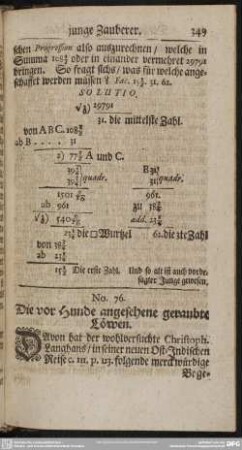 junge Zauberer. 349
schen Progression also auszurechnen / welche in
Summa 108¾ oder in einander vermehret 29791
bringen. So fragt sichs / was für welche ange-
schaffet werden müssen? Fac. 15¾. 31. 62.
SOLUTIO.
29791
31. die mittelste Zahl.
von ABC. 108¾
ab B . . . . 31
2) 77¾ A und C.
quadr. 31 quadr.
1501 961.
ab 961 zu
540 add. 23¼
23¼ die □ Wurtzel 62. die 3te Zahl
von 38
ab 23¼
15 Die erste Zahl. Und so alt ist auch vorbe-
sagter Junge gewesen.
No. 76.
Die vor Hunde angesehene geraubte
Löwen.
Davon hat der wohlversuchte Christoph.
Langhans / in seiner neuen Ost-Indischen
Reise c. p. 113. folgende merckwürdige
Bege-